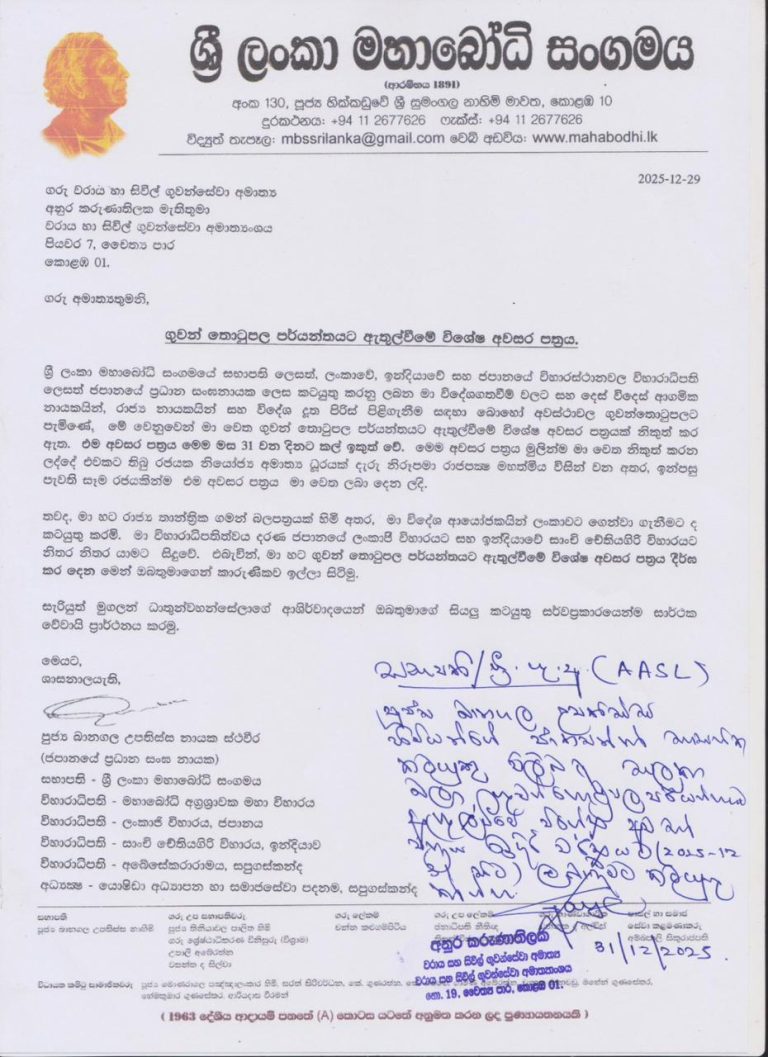 ශ්‍රී ලංකා මහාබෝධි සංගමය
(ආරම්භය 1891)
අංක 130, පූජ්‍ය හික්කඩුවේ ශ්‍රී සුමංගල නාහිමි මාවත, කොළඹ 10
දුරකථනය: +94 11 2677626 ෆැක්ස්: +94 11 2677626
විද්‍යුත් තැපෑල: mbssrilanka@gmail.com වෙබ් අඩවිය: www.mahabodhi.lk
2025-12-29
ගරු වරාය හා සිවිල් ගුවන්සේවා අමාත්‍ය
අනුර කරුණාතිලක මැතිතුමා
වරාය හා සිවිල් ගුවන්සේවා අමාත්‍යංශය
පියවර 7, චෛත්‍ය පාර
කොළඹ 01.
ගරු අමාත්‍යතුමනි,
ගුවන් තොටුපල පර්යන්තයට ඇතුල්වීමේ විශේෂ අවසර පත්‍රය.
ශ්‍රී ලංකා මහාබෝධි සංගමයේ සභාපති ලෙසත්, ලංකාවේ, ඉන්දියාවේ සහ ජපානයේ විහාරස්ථානවල විහාරාධිපති
ලෙසත් ජපානයේ ප්‍රධාන සංඝනායක ලෙස කටයුතු කරනු ලබන මා විදේශගතවීම් වලට සහ දෙස් විදෙස් ආගමික
නායකයින්, රාජ්‍ය නායකයින් සහ විදේශ දූත පිරිස් පිළිගැනීම සඳහා බොහෝ අවස්ථාවල ගුවන්තොටුපලට
පැමිණේ, මේ වෙනුවෙන් මා වෙත ගුවන් තොටුපල පර්යන්තයට ඇතුල්වීමේ විශේෂ අවසර පත්‍රයක් නිකුත් කර
ඇත. එම අවසර පත්‍රය මෙම මස 31 වන දිනට කල් ඉකුත් වේ. මෙම අවසර පත්‍රය මුලින්ම මා වෙත නිකුත් කරන
ලද්දේ එවකට තිබු රජයක නියෝජ්‍ය අමාත්‍ය ධූරයක් දැරු නිරුපමා රාජපක්ෂ මහත්මිය විසින් වන අතර, ඉන්පසු
පැවති සෑම රජයකින්ම එම අවසර පත්‍රය මා වෙත ලබා දෙන ලදි.
තවද, මා හට රාජ්‍ය තාන්ත්‍රික ගමන් බලපත්‍රයක් හිමි අතර, මා විදේශ ආයෝජකයින් ලංකාවට ගෙන්වා ගැනීමට ද
කටයුතු කරමි. මා විහාරාධිපතිත්වය දරණ ජපානයේ ලංකාජි විහාරයට සහ ඉන්දියාවේ සාංචි චේතියගිරි විහාරයට
නිතර නිතර යාමට සිදුවේ. එබැවින්, මා හට ගුවන් තොටුපල පර්යන්තයට ඇතුල්වීමේ විශේෂ අවසර පත්‍රය දීර්ඝ
කර දෙන මෙන් ඔබතුමාගෙන් කාරුණිකව ඉල්ලා සිටිමු.
සැරියුත් මුගලන් ධාතූන්වහන්සේලාගේ ආශිර්වාදයෙන් ඔබතුමාගේ සියලු කටයුතු සර්වප්‍රකාරයෙන්ම සාර්ථක
වේවායි ප්‍රාර්ථනය කරමු.
මෙයට,
ශාසනාලයැති,
පූජ්‍ය බානගල උපතිස්ස නායක ස්ථවිර
(ජපානයේ ප්‍රධාන සංඝ නායක)
සභාපති - ශ්‍රී ලංකා මහාබෝධි සංගමය
විහාරාධිපති - මහාබෝධි අග්‍රශ්‍රාවක මහා විහාරය
විහාරාධිපති - ලංකාජි විහාරය, ජපානය
විහාරාධිපති - සාංචි චේතියගිරි විහාරය, ඉන්දියාව
විහාරාධිපති - අබේසේකරාරාමය, සපුගස්කන්ද
අධ්‍යක්ෂ - යොෂිඩා අධ්‍යාපන හා සමාජසේවා පදනම, සපුගස්කන්ද
සභාපති/ (AASL)
උපතිස්ස
බලා ගුවන්තොටුපල
ඇතුල්වීමේ විශේෂ අවසර
(2025-12
ලබාදීමට කටයුතු
31/12/2025
අනුර කරුණාතිලක
වරාය සහ සිවිල් ගුවන්සේවා අමාත්‍ය
වරාය සහ සිවිල් ගුවන්සේවා අමාත්‍යංශය
නො. 19, චෛත්‍ය පාර, කොළඹ 01.
සභාපති
පූජ්‍ය බානගල උපතිස්ස නාහිමි
ගරු උප සභාපතිවරු
උපාලි අබේරත්න
වසන්ත ද සිල්වා
ගරු ලේකම්
ගරු උප ලේකම්
විධායක කමිටු සාමාජිකවරු
( 1963 දේශීය ආදායම් පනතේ (A) කොටස යටතේ අනුමත කරන ලද පුණ්‍යායතනයකි )